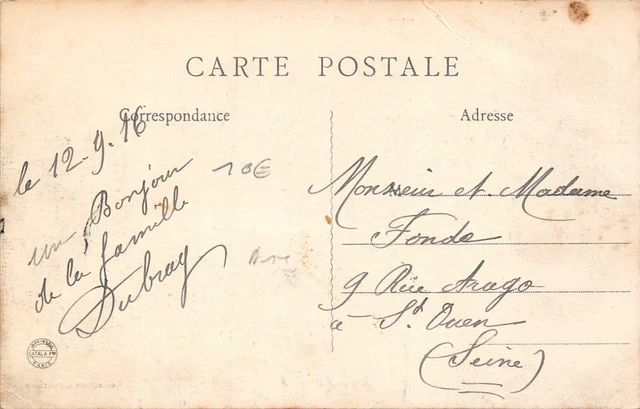 CARTE POSTALE
Correspondance
Adresse
le 12-9-16
un Bonjour
de la famille
Dubray
10€
Monsieur et Madame
Fonde
9 Rue Arago
à St Ouen
(Seine)
CATALA FRES
PARIS